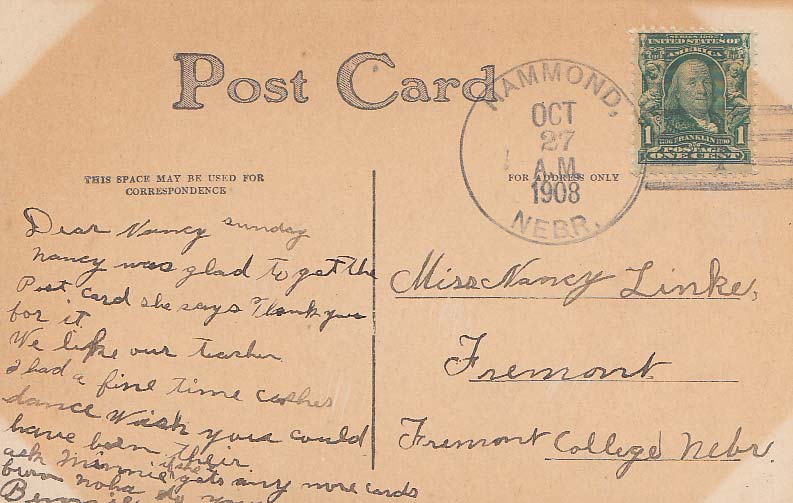 Post Card
HAMMOND,
OCT
27
A.M.
1908
NEBR.
SERIES 1902
UNITED STATES OF
AMERICA
1706 FRANKLIN 1790
1 1
POSTAGE
ONE CENT
THIS SPACE MAY BE USED FOR
CORRESPONDENCE
FOR ADDRESS ONLY
Dear Nancy Sunday
Nancy was glad to get the
Post Card she says Thank you
for it.
We like our teacher
I had a fine time
dance Wish you could
have been their
ask Minnie if she gets any more cards
Miss Nancy Linke,
Fremont
Fremont College Nebr.